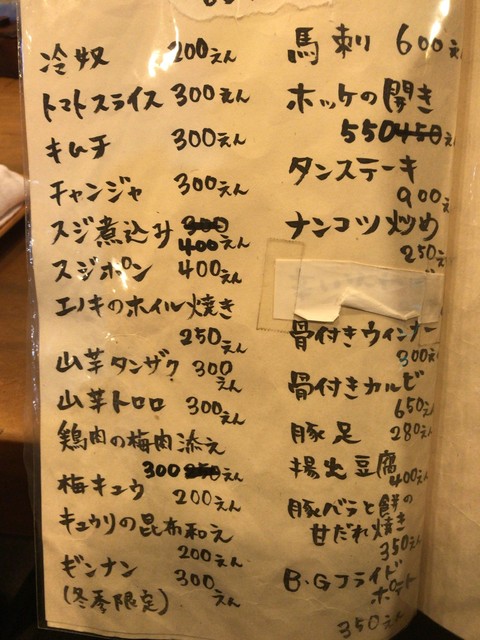 冷奴 200えん
トマトスライス 300えん
キムチ 300えん
チャンジャ 300えん
スジ煮込み 300
400えん
スジポン 400えん
エノキのホイル焼き
250えん
山芋タンザク 300
えん
山芋トロロ 300えん
鶏肉の梅肉添え
300 250えん
梅キュウ 200えん
キュウリの昆布和え
200えん
ギンナン 300えん
(冬季限定)
馬刺 600えん
ホッケの開き
550 450え
タンステーキ
900え
ナンコツ炒め
250え
骨付きウィンナー
300えん
骨付きカルビ
650え
豚足 280えん
揚出豆腐
400えん
豚バラと餅の
甘だれ焼き
350えん
B.Gフライド
ポテト
350えん